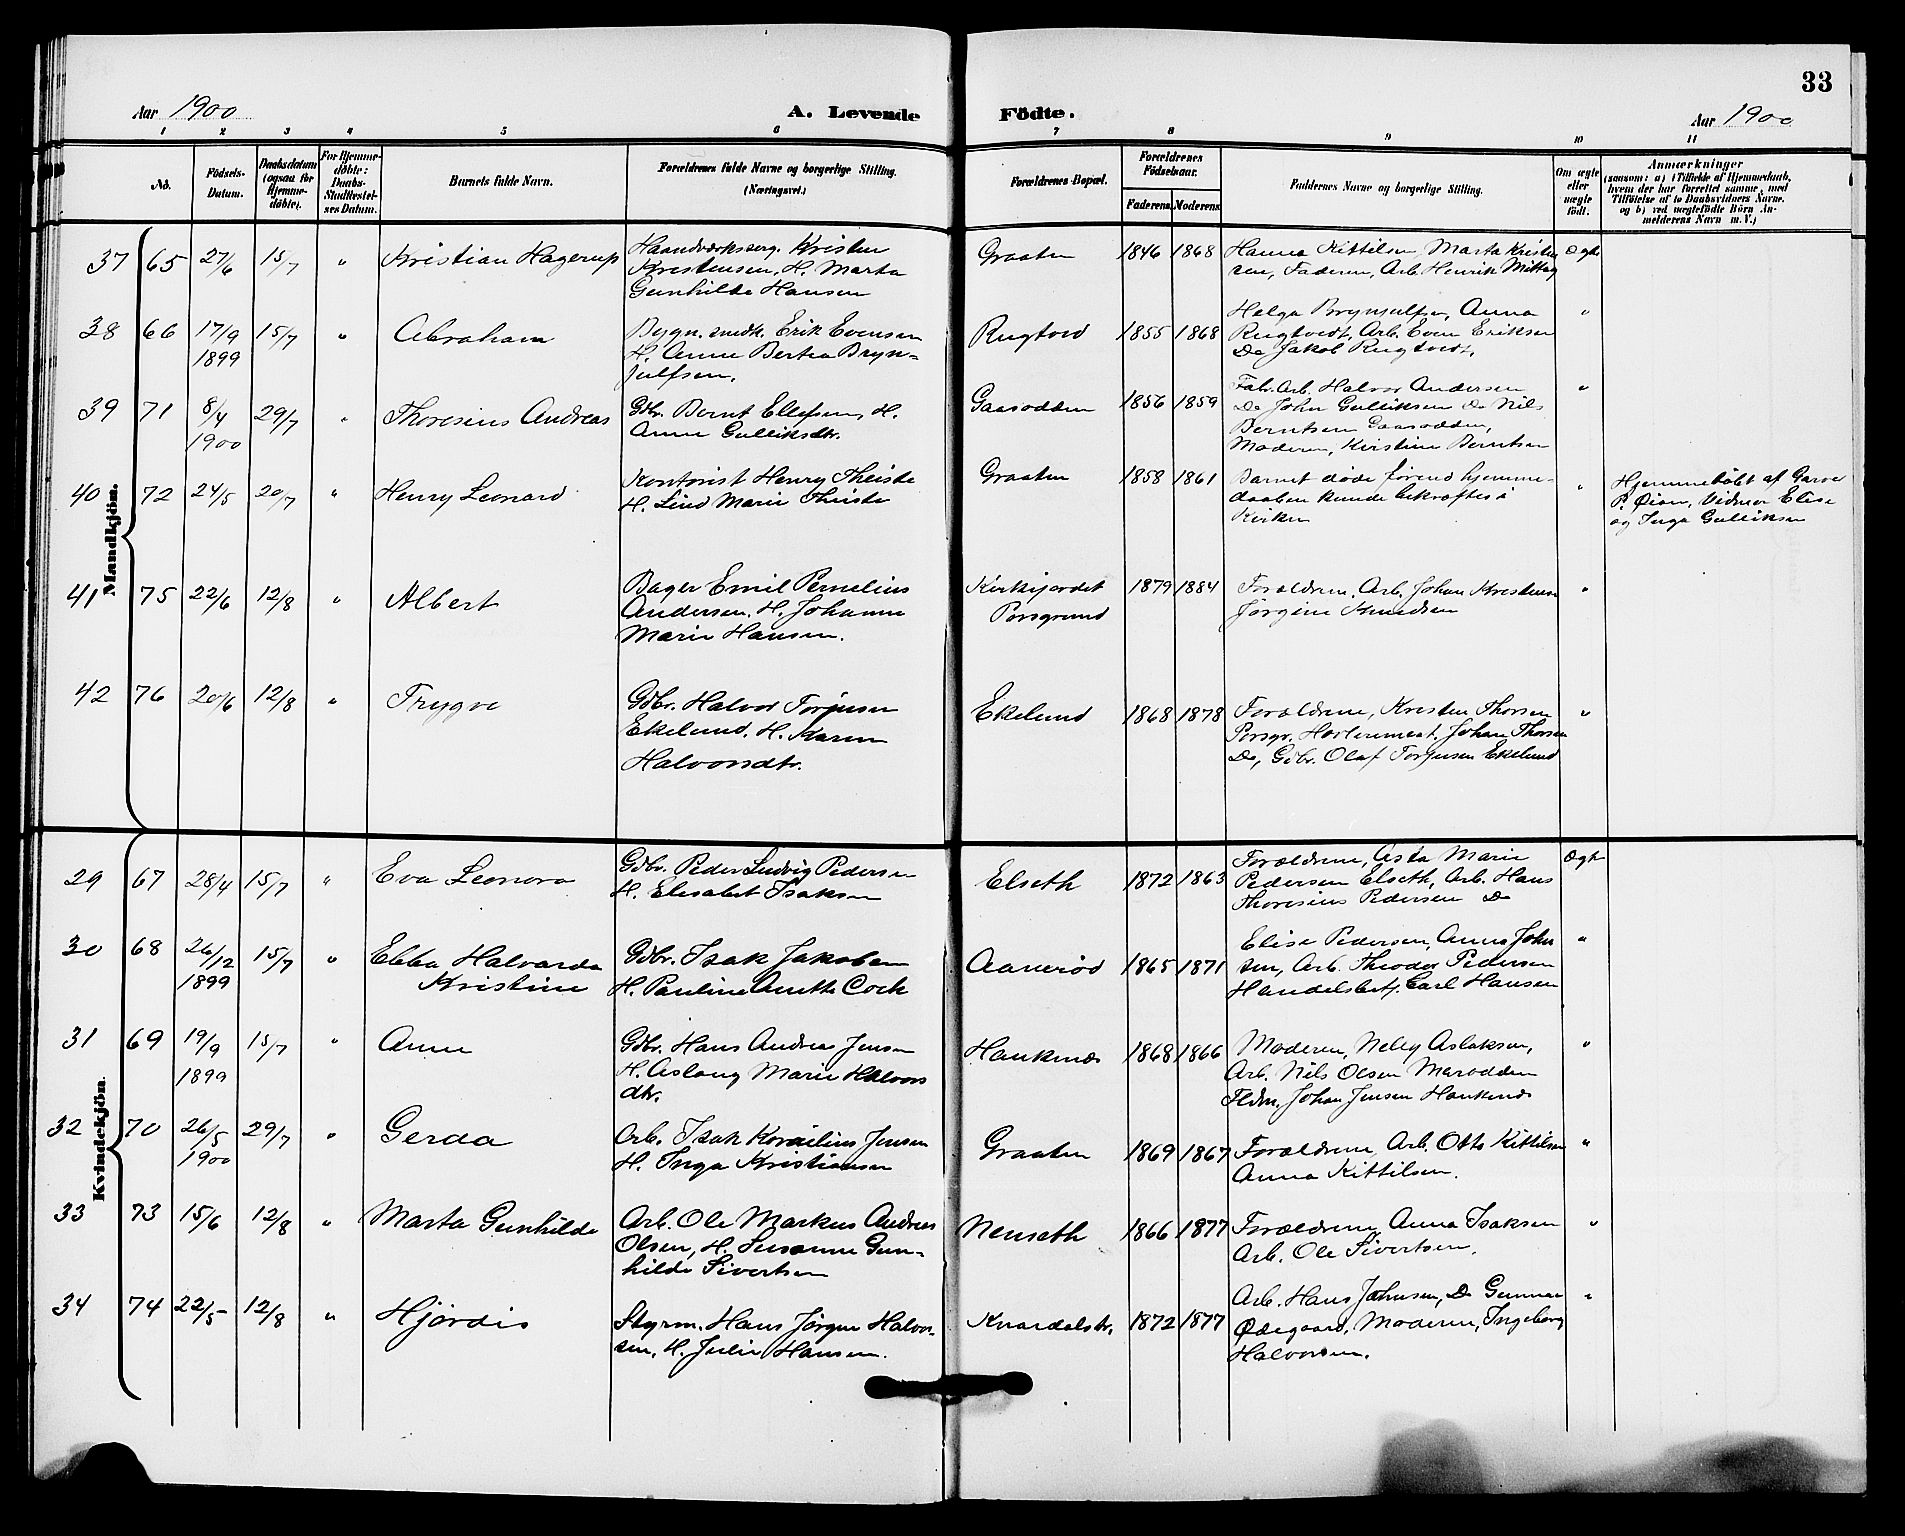 33
Aar 1900 A. Levende Födte. Aar 1900
1 2 3 4 5 6 7 8 9 10 11
No. Födsels-Datum. Daabsdatum (ogsaa for Hjemme-döbte). For Hjemme-döbte: Daabs-Stadfæstel-ses Datum. Barnets fulde Navn. Forældrenes fulde Navne og borgerlige Stilling. (Næringsvei.) Forældrenes Bopæl. Forældrenes Födselsaar. Faderens. Moderens. Faddernes Navne og borgerlige Stilling. Om ægte eller uægte födt. Anmærkninger (saasom: a) i Tilfælde af Hjemmedaab, hvem der har forrettet samme, med Tilföielse af to Daabsvidners Navne, og b) ved uægtefödte Börn An-melderens Navn m. V.)
Mandkjön.
37 65 27/6 15/7 " Kristian Hagerup
Haandværksberg. Kristen
Kristensen, H. Marta
Gunhilde Hansen
Graaten 1846 1868
Hanna Kittilsen, Marta Kristen
sen, Faderen, Arb. Henrik Mittag
Ægte
38 66 17/9 1899 15/7 " Abraham
Bygn. snedk. Erik Evensen
H. Anne Bertea Bryn-
julfsen.
Rugtved 1855 1868
Helga Brynjulfsen, Anna
Rugtvedt, Arb. Even Eriksen
Do Jakob Rugtvedt.
"
39 71 8/4 1900 29/7 " Thoresius Andreas
Gbr. Bernt Ellefsen, H.
Anne Gulliksdtr.
Gaasodden 1856 1859
Fab. Arb. Halvor Andersen
Do John Gulliksen Do Nils
Berntsen Gaasodden,
Moderen, Kirstine Berntsen
"
40 72 24/5 20/7 " Henry Leonard
Kontorist Henry Theiste
H. Lind Marie Theiste
Graaten 1858 1861
Barnet døde førend hjemme-
daaben kunde bekræftes i
Kirken
"
Hjemmedøbt af Garver
P. Øian, Vidner Elise
og Inga Gulliksen
41 75 22/6 12/8 " Albert
Bager Emil Pernelius
Andersen. H. Johanne
Marie Hansen.
Kirkfjordet
Porsgrund
1879 1884
Forældrene, Arb. Johan Kristensen
Jørgine Knudsen
"
42 76 20/6 12/8 " Trygve
Gbr. Halvor Torjusen
Ekelund. H. Karen
Halvorsdtr.
Ekelund 1868 1878
Forældrene, Kristen Thorsen
Porsgr. Johan Thorsen
Do, Gbr. Olaf Torjusen Ekelund
"
Kvindekjön.
29 67 28/4 15/7 " Eva Leonora
Gbr. Peder Ludvig Pedersen
H. Elisabet Isaksen
Elseth 1872 1863
Forældrene, Asta Marie
Pedersen Elseth, Arb. Hans
Thoresius Pedersen Do
Ægte
30 68 26/12 1899 15/7 " Ebba Halvarda
Kristine
Gbr. Isak Jakobsen
H. Pauline Anette Cock
Aanerød 1865 1871
Elise Pedersen, Anna John
sen, Arb. Theodor Pedersen
Handelsbetj. Carl Hansen
"
31 69 19/9 1899 15/7 " Anne
Gbr. Hans Andreas Jensen
H. Aslaug Marie Halvors
dtr.
Hankenæs 1868 1866
Moderen, Nelly Aslaksen,
Arb. Nils Olsen Marodden
Johan Jensen Hankenæs
"
32 70 26/5 1900 29/7 " Gerda
Arb. Isak Kornelius Jensen
H. Inga Kristiansen
Graaten 1869 1867
Forældrene, Arb. Otto Kittilsen
Anna Kittilsen.
"
33 73 15/6 12/8 " Marta Gunhilde
Arb. Ole Markus Andreas
Olsen, H. Susanne Gun-
hilde Sivertsen
Nenseth 1866 1877
Forældrene, Anna Isaksen
Arb. Ole Sivertsen.
"
34 74 22/5 12/8 " Hjørdis
Styrm. Hans Jørgen Halvor-
sen, H. Julie Hansen.
Knardalstr. 1872 1877
Arb. Hans Johnsen, Do Gunnar
Ødegaard, Moderen, Ingeborg
Halvorsen.
"